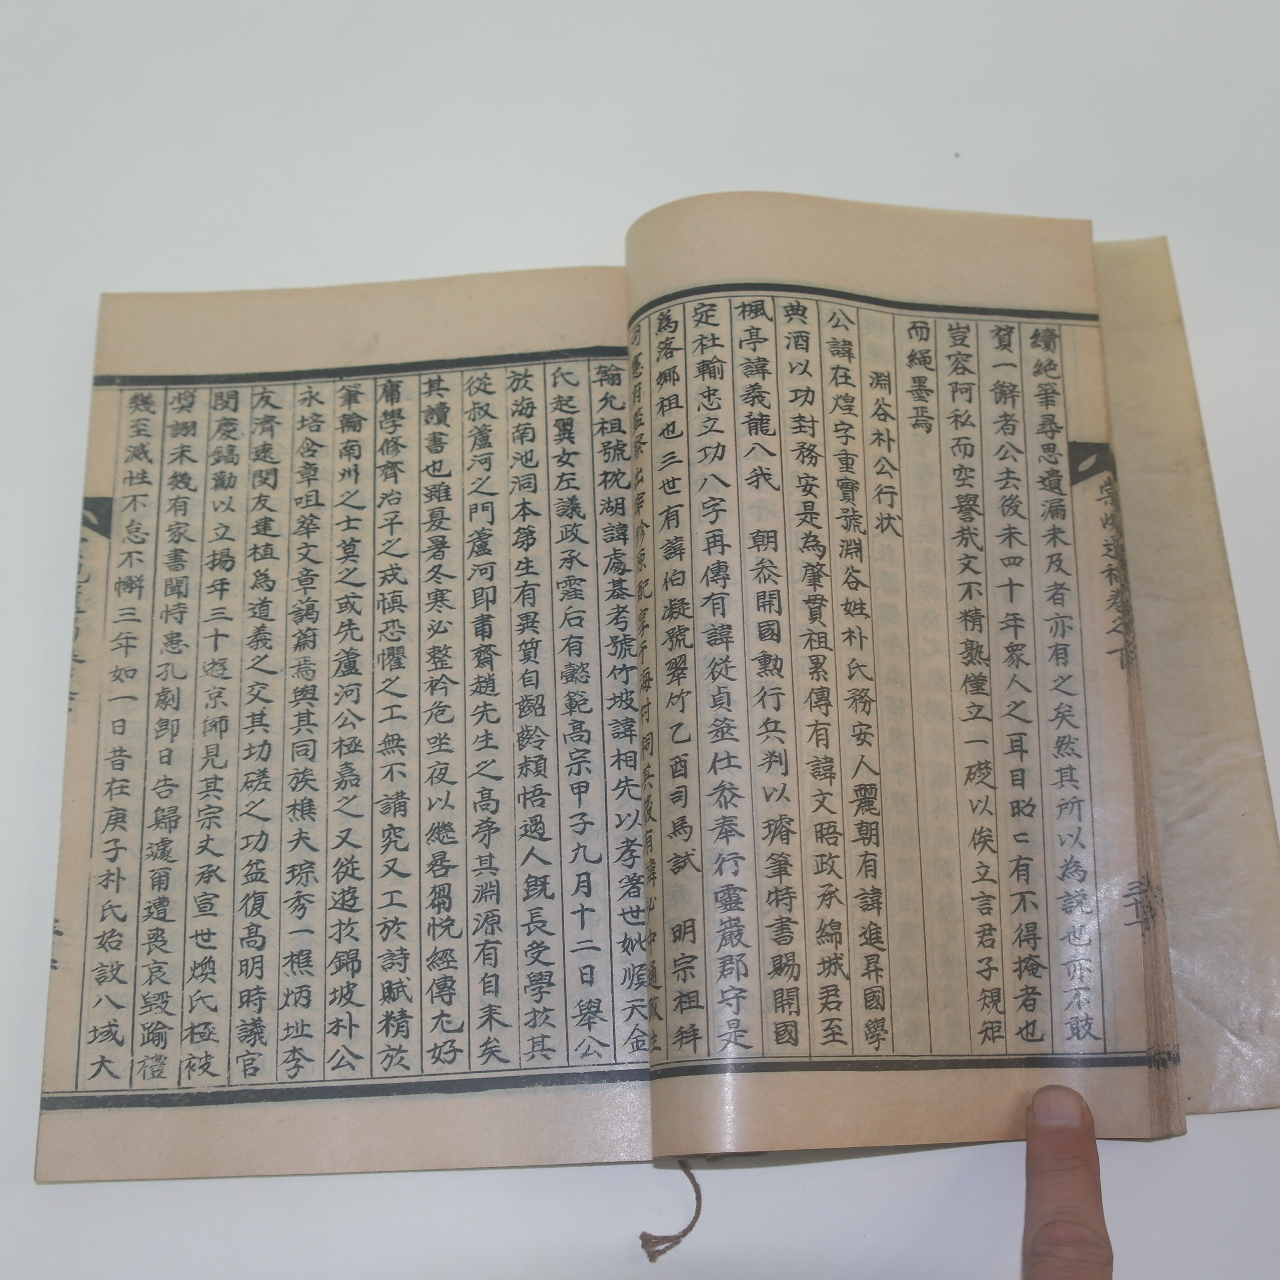 續絶筆尋思遺漏未及者亦有之矣然其所以為說也亦不敢
贊一辭者公去後未四十年衆人之耳目昭〻有不得掩者也
豈容阿私而空譽㦲文不精熟僅立一礎以俟立言君子䂓矩
而繩墨焉
淵谷朴公行状
公諱在煌字重寶號淵谷姓朴氏務安人麗朝有諱進昇國學
典酒以功封務安是為肇貫祖累傳有諱文晤政承綿城君至
楓亭諱義龍入我 朝叅開國勳行兵判以璿筆特書賜開國
定社輸忠立功八字再傳有諱從貞筮仕叅奉行靈巖郡守是
為落鄉祖也三世有諱伯凝號翠竹乙酉司馬試 明宗祖拜
翰允祖號枕湖諱處基考號竹坡諱相先以孝著世妣順天金
氏起翼女左議政承霔后有懿範高宗甲子九月十二日舉公
於海南池洞本第生有異質自齠齡頴悟過人既長受學於其
從叔蘆河之門蘆河即肅齋趙先生之高弟其淵源有自来矣
其讀書也雖夏暑冬寒必整衿危坐夜以繼晷蒭悅經傳尢好
庸學修齊治平之戒慎恐懼之工無不講究又工於詩賦精於
筆翰南州之士莫之或先蘆河公極嘉之又從遊於錦坡朴公
永培含章咀華文章藹蔚焉與其同族樵夫琮秀一樵炳址李
友濟遠閔友建植為道義之交其切磋之功益復高明時議官
閔慶鎬勸以立揚年三十遊京師見其宗丈承宣世煥氏極被
奬詡未幾有家書聞恃患孔劇卽日告歸遽爾遭喪哀毀踰禮
幾至滅性不怠不懈三年如一日昔在庚子朴氏始設八域大